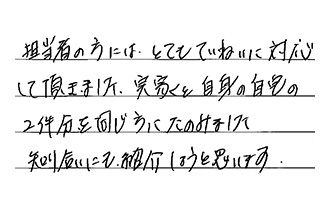 担当者の方には、とてもていねいに対応
して頂きました、実家と自身の自宅の
2件分を同じ方にたのみました
知り合いにも、紹介しようと思います.